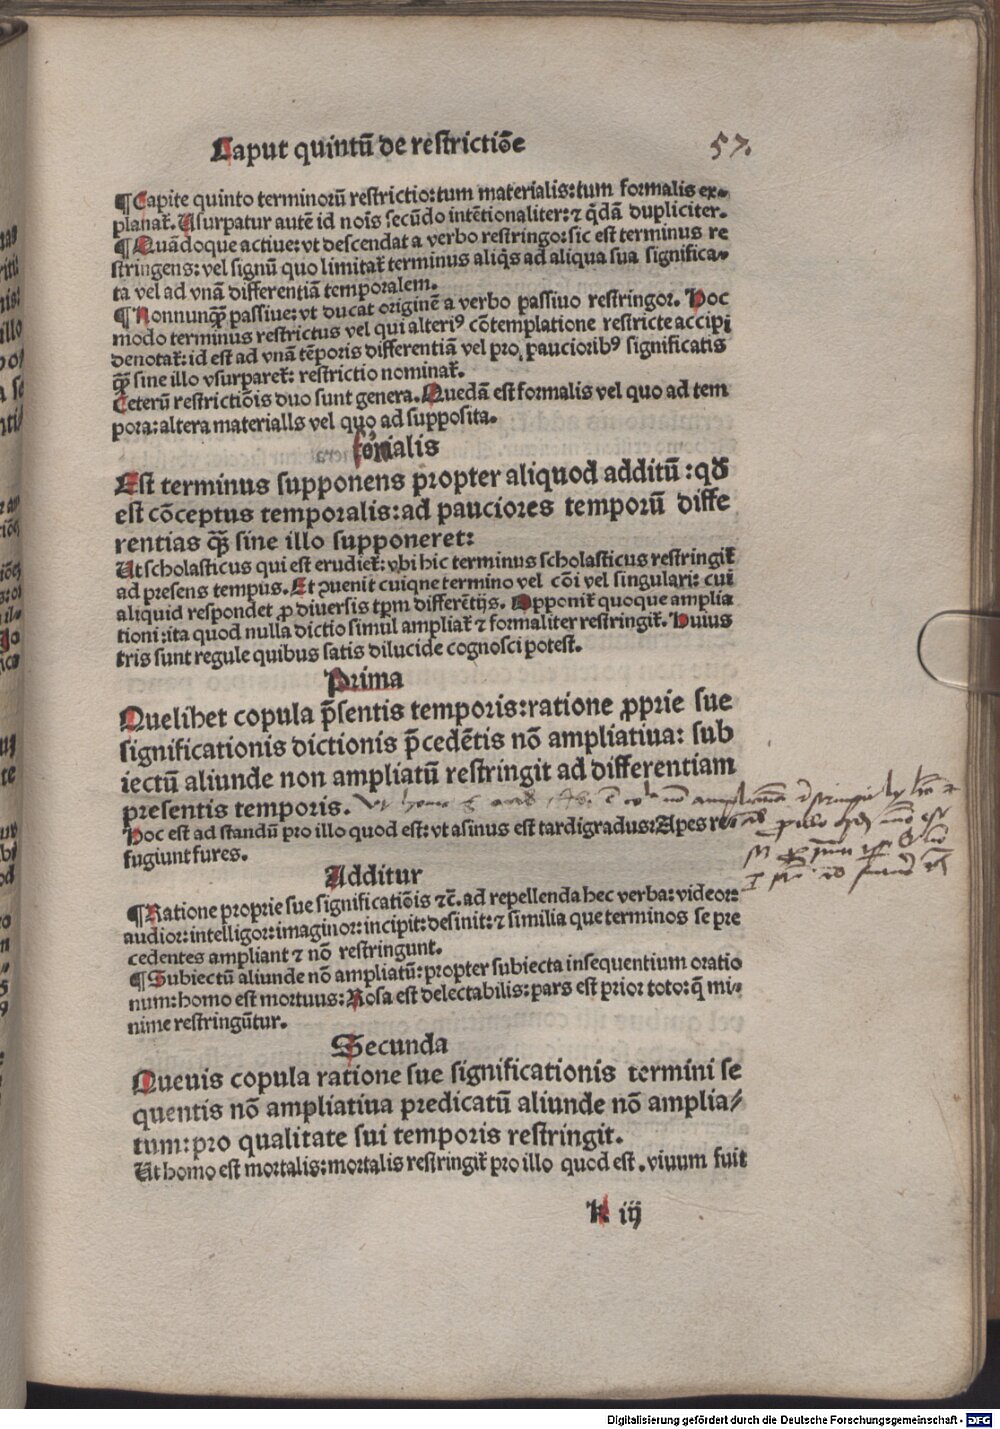 Caput quintū de restrictiōe
57.
¶Capite quinto terminorū restrictio:tum materialis:tum formalis ex⸗
planat̄. Usurpatur autē id noīs secūdo intētionaliter:⁊ q̄dā dupliciter.
¶Quādoque actiue:vt descendat a verbo restringo:sic est terminus re
stringens:vel signū quo limitat̄ terminus aliq̄s ad aliqua sua significa⸗
ta vel ad vnā differentiā temporalem.
¶Nonnunq̄ꝫ passiue:vt ducat originē a verbo passiuo restringor. Hoc
modo terminus restrictus vel qui alteriꝰ cōtemplatione restricte accipi
denotat̄:id est ad vnā tēporis differentiā vel pro paucioribꝰ significatis
q̄ꝫ sine illo vsurparet̄: restrictio nominat̄.
Ceterū restrictiōis duo sunt genera. Quedā est formalis vel quo ad tem
pora:altera materialls vel quo ad supposita.
formalis
Est terminus supponens propter aliquod additū:qđ
est cōceptus temporalis:ad pauciores temporū diffe
rentias q̄ꝫ sine illo supponeret:
Ut scholasticus qui est erudiet̄: vbi hic terminus scholasticus restringit̄
ad presens tempus. Et ꝯuenit cuiqne termino vel cōi vel singulari: cui
aliquid respondet ꝓ diuersis tp̄m differētijs. Opponit̄ quoque amplia
tioni:ita quod nulla dictio simul ampliat̄ ⁊ formaliter restringit̄. Huius
tris sunt regule quibus satis dilucide cognosci potest.
Prima
Quelibet copula p̄sentis temporis:ratione ꝓprie sue
significationis dictionis p̄cedētis nō ampliatiua: sub
iectū aliunde non ampliatū restringit ad differentiam
presentis temporis.
Hoc est ad standū pro illo quod est:vt asinus est tardigradus:Apes re⸗
fugiunt fures.
Additur
¶Ratione proprie sue significatiōis ⁊c̄. ad repellenda hec verba: videor:
audior:intelligor:imaginor:incipit:desinit:⁊ similia que terminos se pre
cedentes ampliant ⁊ nō restringunt.
¶Subiectū aliunde nō ampliatū:propter subiecta insequentium oratio
num:homo est mortuus:Rosa est delectabilis:pars est prior toto:q̄ mi⸗
nime restringūtur.
Secunda
Queuis copula ratione sue significationis termini se
quentis nō ampliatiua predicatū aliunde nō amplia⸗
tum:pro qualitate sui temporis restringit.
Ut homo est mortalis:mortalis restringit̄ pro illo quod est. viuum fuit
k iij
Digitalisierung gefördert durch die Deutsche Forschungsgemeinschaft - DFG